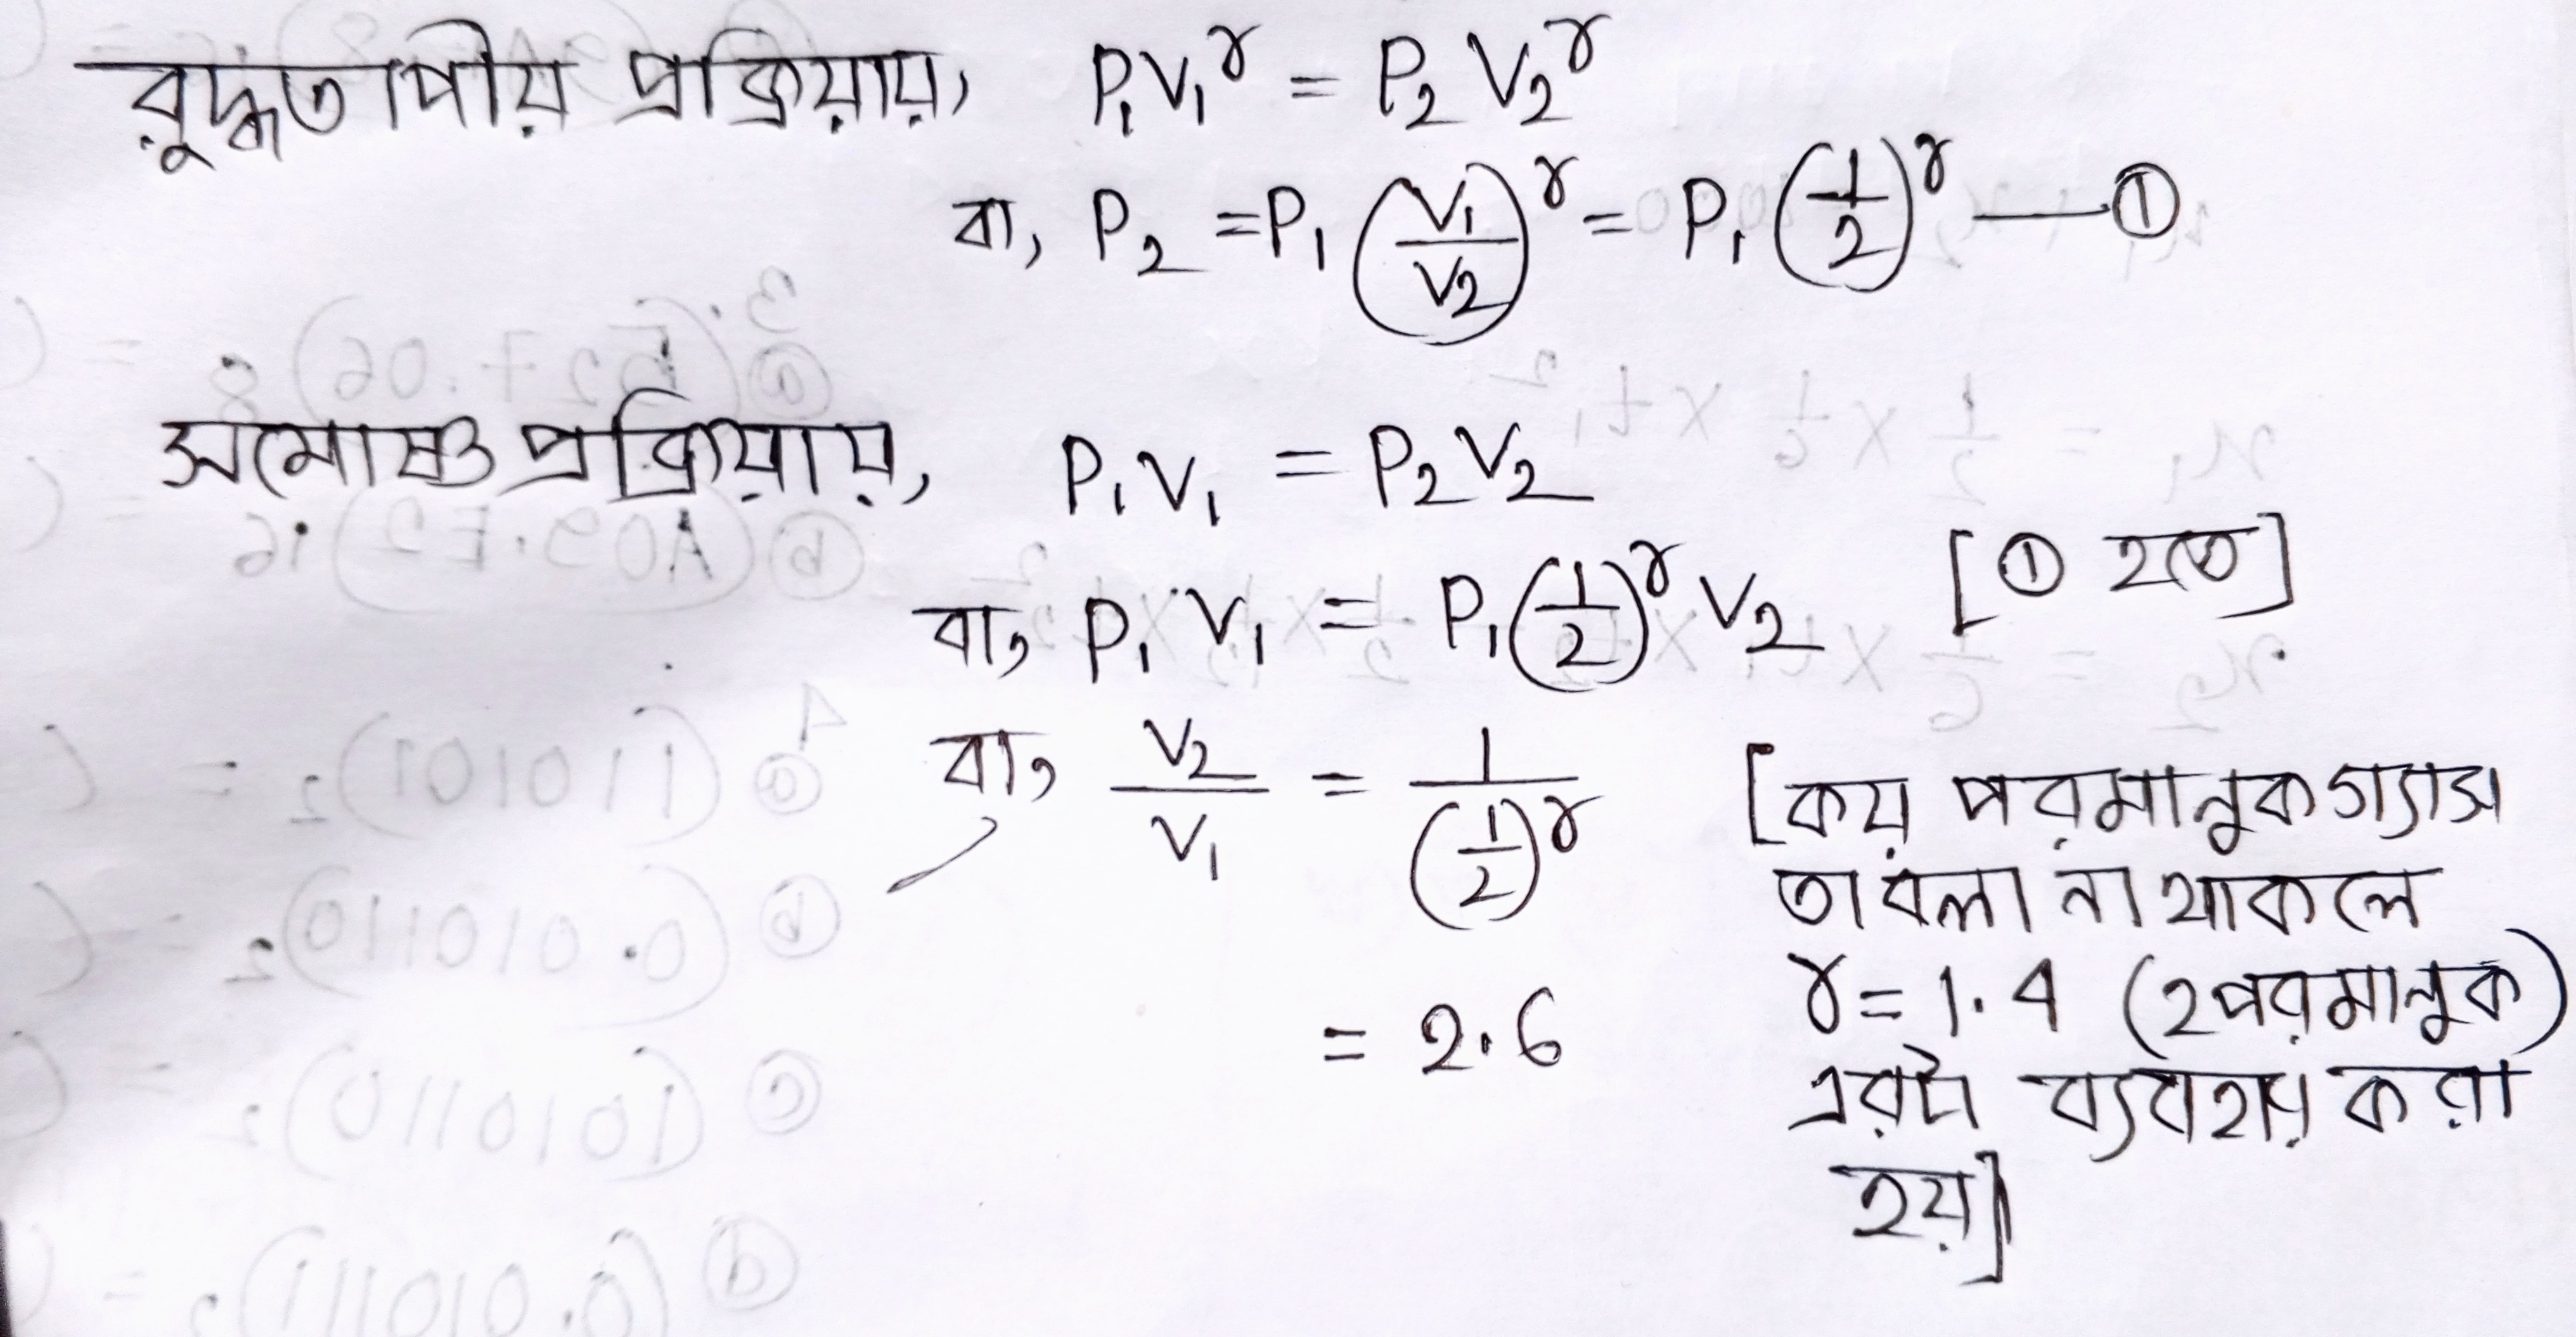 রুদ্ধতাপীয় প্রক্রিয়ায়, P₁V₁^γ = P₂V₂^γ
বা, P₂ = P₁(V₁/V₂)^γ = P₁(1/2)^γ — ①
সমোষ্ণ প্রক্রিয়ায়, P₁V₁ = P₂V₂
বা, P₁V₁ = P₁(1/2)^γ V₂ [① হতে]
বা, V₂/V₁ = 1/(1/2)^γ [কয় পরমানুক গ্যাস
তা বলা না থাকলে
= 2.6 γ = 1.4 (২পরমানুক)
এরটা ব্যবহার করা
হয়]